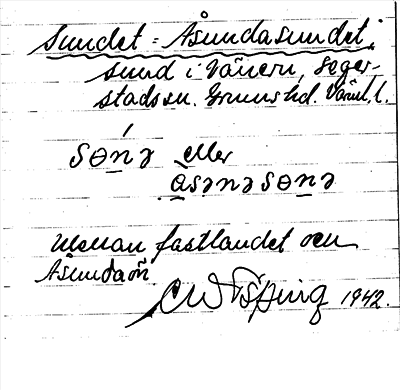 Sundet = Åsundasundet.
sund i Vänern, Seger-
stads sn. Grums hd. Värml. l.
sɵnə eller
åsənəsɵnə
mellan fastlandet och
Åsundaön.
1942.